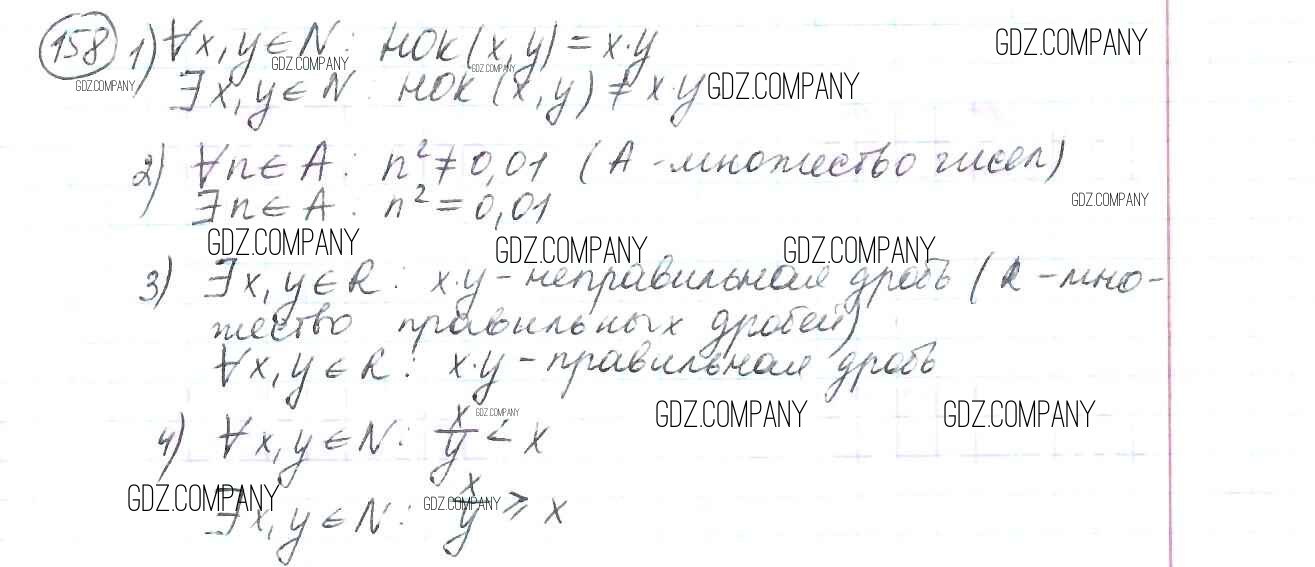 158 1) ∀x, y ∈ N : НОК(x, y) = x·y GDZ.COMPANY
GDZ.COMPANY GDZ.COMPANY GDZ.COMPANY
∃x, y ∈ N : НОК(x, y) ≠ x·y GDZ.COMPANY
2) ∀n ∈ A : n² ≠ 0,01 (A - множество чисел)
∃n ∈ A : n² = 0,01 GDZ.COMPANY
GDZ.COMPANY GDZ.COMPANY GDZ.COMPANY
3) ∃x, y ∈ R : x·y - неправильная дробь (R - мно-
жество правильных дробей)
∀x, y ∈ R : x·y - правильная дробь
GDZ.COMPANY GDZ.COMPANY GDZ.COMPANY
4) ∀x, y ∈ N : x/y < x
GDZ.COMPANY GDZ.COMPANY
∃x, y ∈ N : x/y ⩾ x